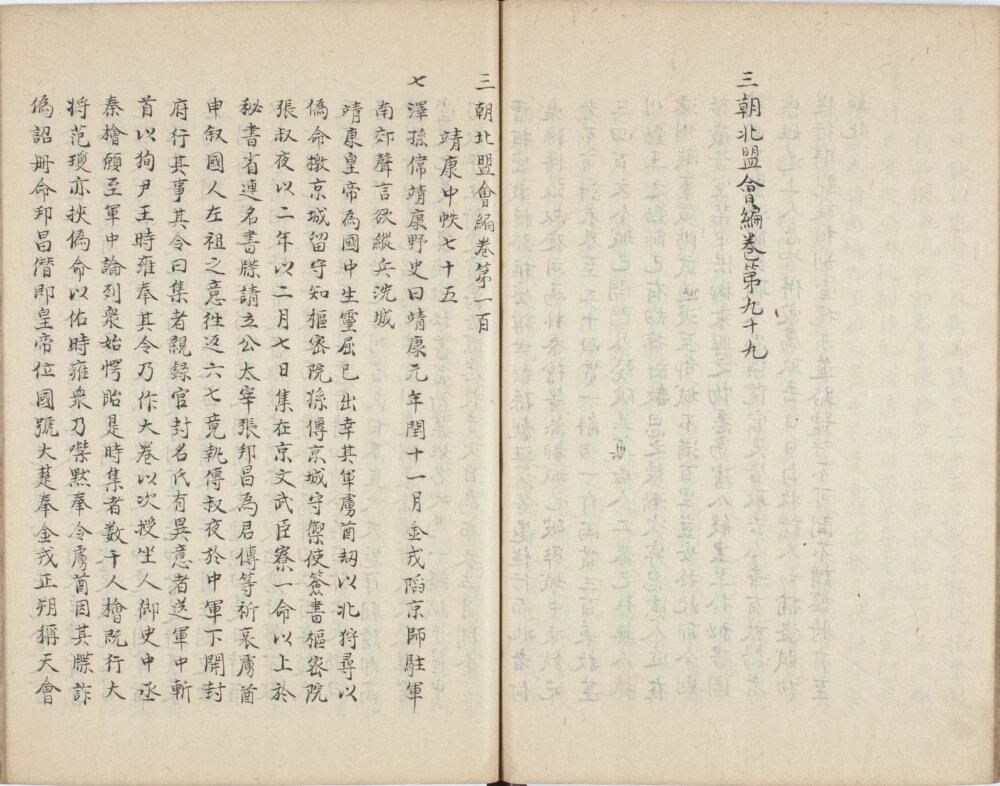 三朝北盟會編卷第九十九
三朝北盟會編卷第一百
靖康中帙七十五
七澤孫偉靖康野史曰靖康元年閏十一月金戎䧟京師駐軍
南郊聲言欲縱兵洗城
靖康皇帝為國中生靈屈已出幸其軍虜酋刼以北狩尋以
偽命檄京城留守知樞密院孫傅京城守禦使簽書樞密院
張叔夜以二年以二月七日集在京文武臣寮一命以上於
秘書省連名書牒請立公太宰張邦昌為君傅等祈哀虜酋
申叙國人左袒之意往返六七竟執傅叔夜於中軍下開封
府行其事其令曰集者親錄官封名氏有異意者送軍中斬
首以狥尹王時雍奉其令乃作大卷以次授坐人御史中丞
秦檜願至軍中論列衆始愕眙是時集者数千人檜既行大
将范瓊亦挾偽命以佑時雍衆乃噤默奉令虜酋因其牒詐
偽詔册命邦昌僭即皇帝位國號大楚奉金戎正朔稱天會